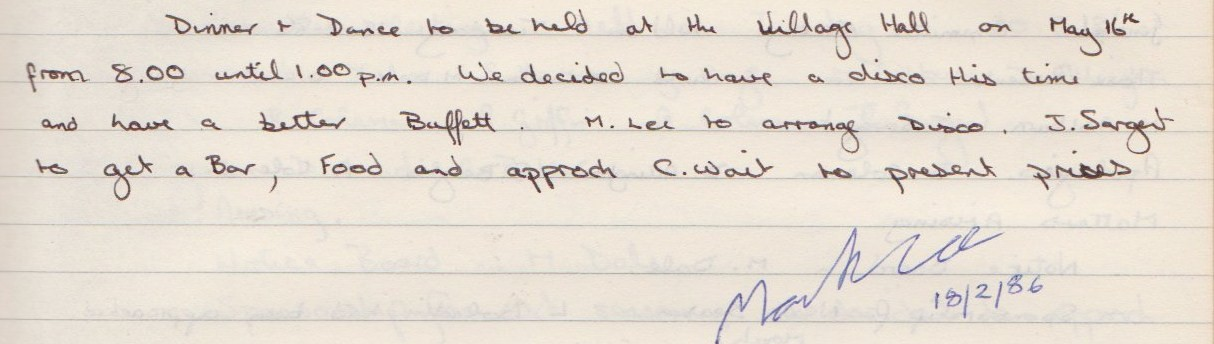 Dinner + Dance to be held at the Village Hall on May 16th
from 8.00 until 1.00 p.m. We decided to have a disco this time
and have a better Buffett. M. Lee to arrange Disco. J. Sargent
to get a Bar, Food and approch C. Wait to present prices
18/2/86